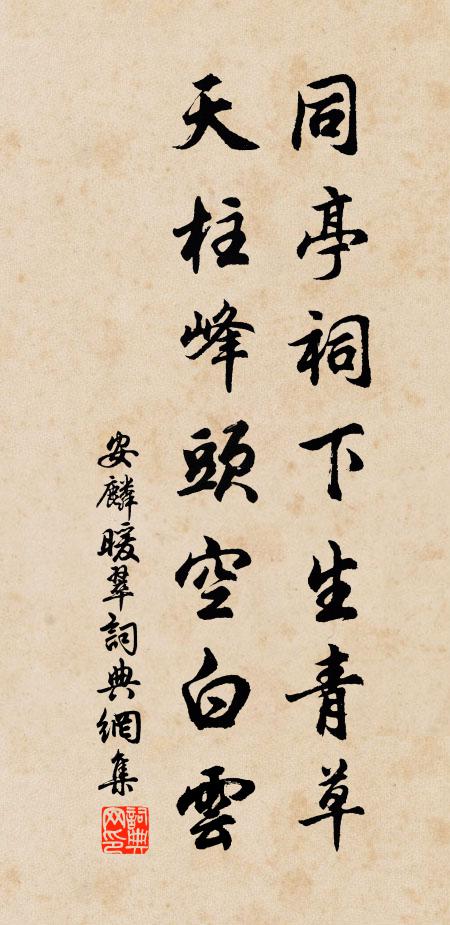 同亭祠下生青草
天柱峰頭空白雲
安麟暖翠詞典網集
詞典网印